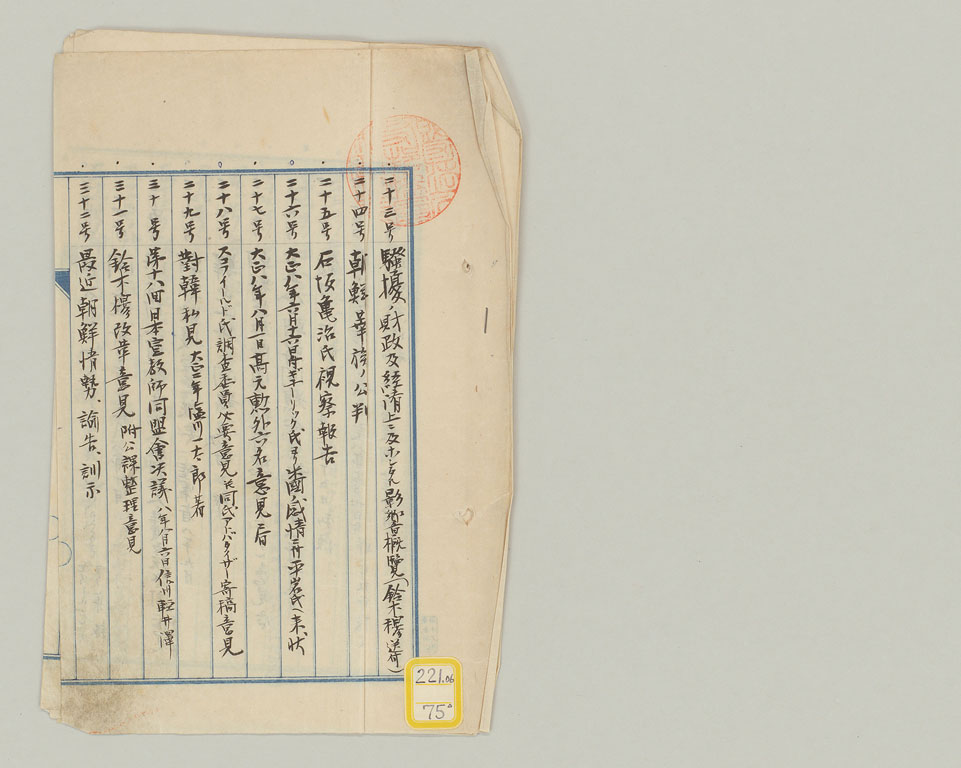 二十三号 騒擾ノ財政及経済上ニ及ホシタル影響概覧(鈴木穆送付)
二十四号 朝鮮華族ノ公判
二十五号 石坂亀治氏視察報告
二十六号 大正八年六月十六日ギューリック氏ヨリ米国感情ニ付平岩氏ヘ来状
二十七号 大正八年八月一日高元勲外六名意見書
二十八号 スコフイールド氏調査委員必要意見 同氏アドバタイザー寄稿意見
二十九号 對韓私見 大正二年 塩川一太郎著
三十号 第十八回日本宣教師同盟會決議 八年八月六日信州軽井澤
三十一号 鈴木穆改革意見 附公課整理意見
三十二号 最近朝鮮情勢、諭告、訓示
221.06
75